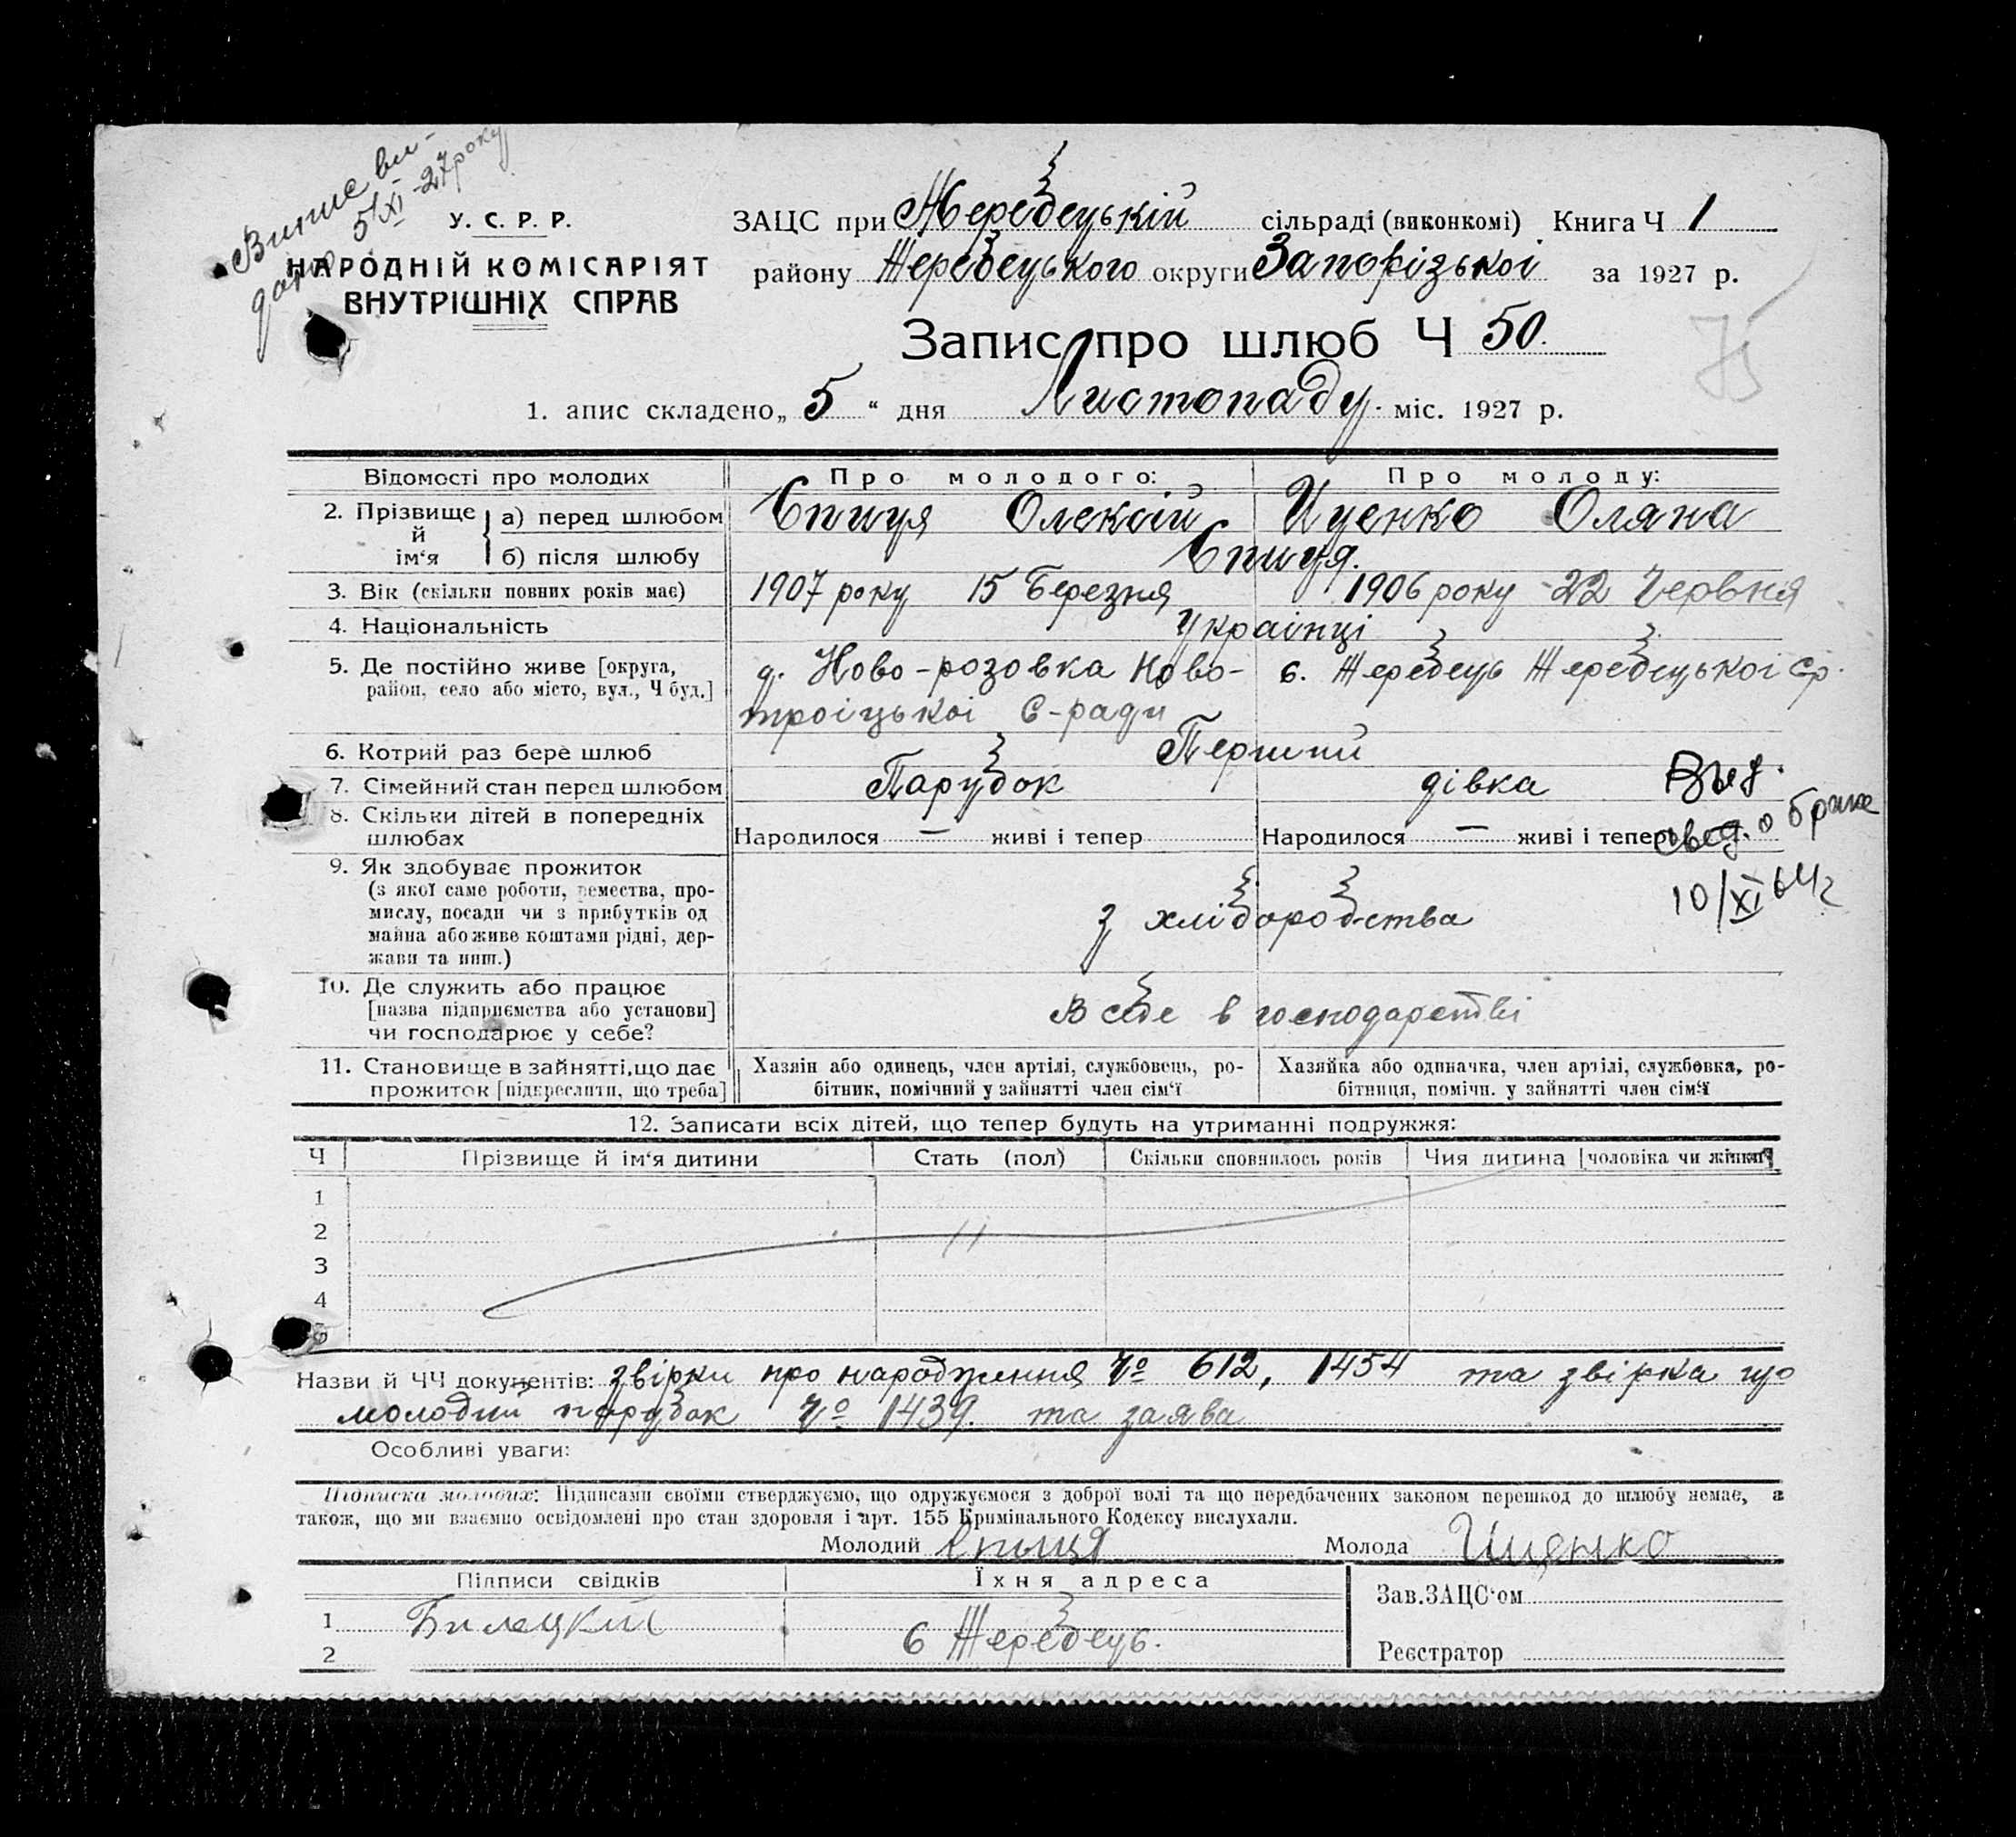 Випис ви-
дано 5/XI-27 року
У. С. Р. Р.
НАРОДНІЙ КОМІСАРІЯТ
ВНУТРІШНІХ СПРАВ
ЗАЦС при Жеребецькій сільраді (виконкомі) Книга Ч 1
району Жеребецького округи Запорізької за 1927 р.
Запис про шлюб Ч 50.
75
1. апис складено „ 5 “ дня Листопаду міс. 1927 р.
Відомості про молодих Про молодого: Про молоду:
2. Прізвище й ім‘я а) перед шлюбом Єпиця Олексій Иценко Оляна
б) після шлюбу Єпиця.
3. Вік (скільки повних років має) 1907 року 15 Березня 1906 року 22 Червня
4. Національність Українці
5. Де постійно живе [округа, д. Ново-розовка Ново- с. Жеребець Жеребецької ср.
район, село або місто, вул., Ч буд.] троіцької С-ради
6. Котрий раз бере шлюб Перший
7. Сімейний стан перед шлюбом Парубок дівка Выд.
8. Скільки дітей в попередніх
шлюбах Народилося — живі і тепер Народилося — живі і тепер свед. о браке
10/XI 64г
9. Як здобуває прожиток
(з якої саме роботи, ремества, про-
мислу, посади чи з прибутків од з хліборобства
майна або живе коштами рідні, дер-
жави та инш.)
10. Де служить або працює
[назва підприємства або установи] В себе в господарстві
чи господарює у себе?
11. Становище в зайнятті, що дає Хазяїн або одинець, член артілі, службовець, ро- Хазяйка або одиначка, член артілі, службовка, ро-
прожиток [підкреслити, що треба] бітник, помічний у зайнятті член сім‘ї бітниця, помічн. у зайнятті член сім‘ї
12. Записати всіх дітей, що тепер будуть на утриманні подружжя:
Ч Прізвище й ім‘я дитини Стать (пол) Скільки сповнилось років Чия дитина [чоловіка чи жінки]
1
2
3
4
5
Назви й ЧЧ документів: звірки про народження № 612, 1454 та звірка що
молодий парубок № 1439. та заява
Особливі уваги:
Підписка молодих: Підписами своїми стверджуємо, що одружуємося з доброї волі та що передбачених законом перешкод до шлюбу немає, а
також, що ми взаємно освідомлені про стан здоровля і арт. 155 Кримінального Кодексу вислухали.
Молодий Єпиця Молода Ищенко
Підписи свідків Їхня адреса Зав. ЗАЦС‘ом
1 Билецкий с Жеребець.
2 Реєстратор